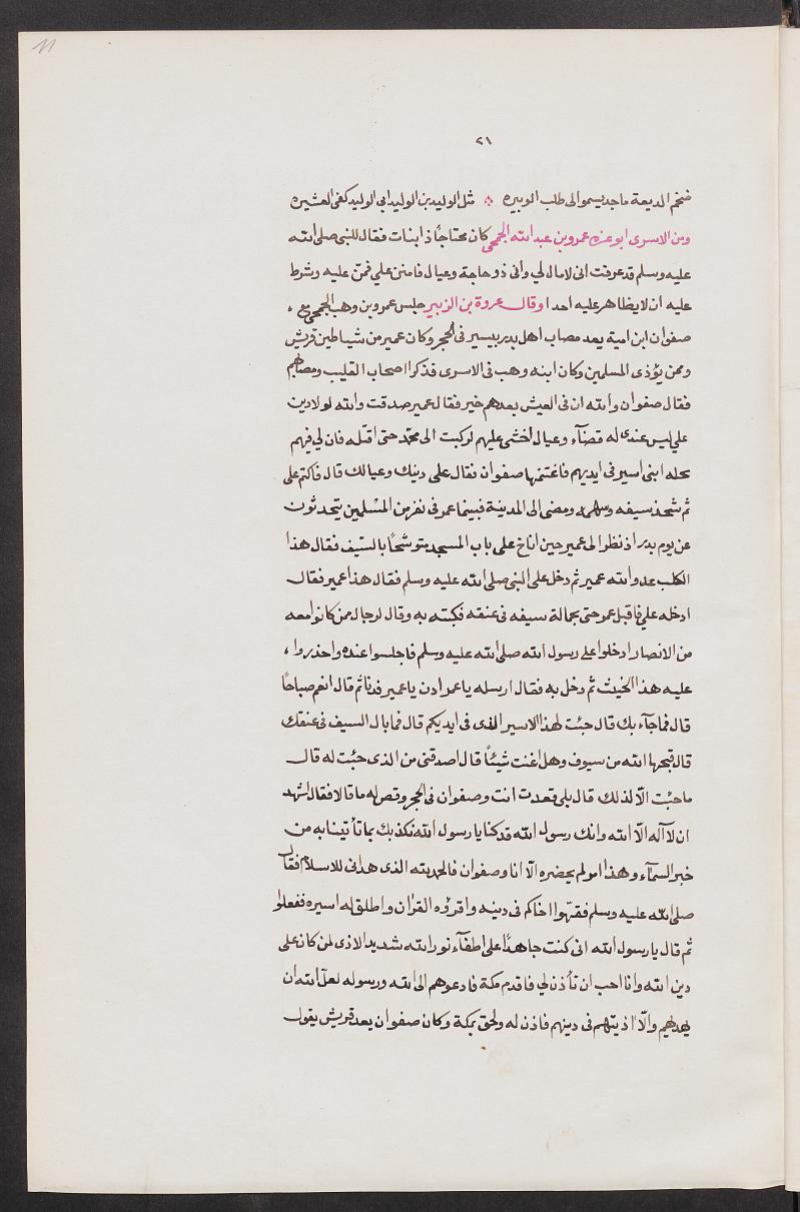 11
٢١
ضخم الدسيعة ماجد يسموا الى طلب الوبيره ۞ مثل الوليد بن الوليد ابى الوليد كفى العشيره
ومن الاسرى ابو عزه عمرو بن عبد الله الجمحى كان محتاجًا ذا بنات فقال للنبى صلى الله
عليه وسلم قد عرفت انى لا مال لي وانى ذو حاجة وعيال فامنن علي فمنّ عليه وشرط
عليه ان لا يظاهر عليه احدا وقال عروة بن الزبير جلس عمرو بن وهب الجمحى مع
صفوان ابن امية بعد مصاب اهل بدر بيسير فى الحجر وكان عمير من شياطين قريش
وممن يؤذى المسلمين وكان ابنه وهب فى الاسرى فذكرا اصحاب القليب ومصابهم
فقال صفوان والله ان فى العيش بعدهم خير فقال عمير صدقت والله لولا دين
علي ليس عندى له قضآء وعيال اخشى عليهم لركبت الى محمّد حتى اقتله فان لي فيهم
بحله ابنى اسير فى ايديهم فاغتنمها صفوان فقال على دينك وعيالك قال فاكتم على
ثم شحذ سيفه وسمه ومضى الى المدينة فبينما عمر فى نفر من المسْلمين يتحدثون
عن يوم بدر اذ نظر الى عمير حين اناخ على باب المسجد متوشحًا بالسّيف فقال هذا
الكلب عدو الله عمير ثم دخل على النبى صلى الله عليه وسلم فقال هذا عمير فقال
ادخله علي فاقبل عمر حتى بحمالة سيفه فى عنقه فكبته به وقال لرجال ممن كانوا معه
من الانصار ادخلوا على رسول الله صلى الله عليه وسلم فاجلسوا عنده واحذروا
عليه هذا الخيث ثم دخل به فقال ارسله يا عمر ادن يا عمير فدنا ثم قال انعم صباحًا
قال فما جآء بك قال جئت لهذا الاسير الذى فى ايديكم قال فما بال السيف فى عنقك
قال قبحها الله من سيوف وهل اغنت شيئًا قال اصدقنى من الذى جئت له قال
ما جئت الّا لذلك قال بلى قعدت انت وصفوان فى الحجر وقص له ما قالا فقال اشهد
ان لآ اله الّا الله وانك رسول الله قد كنا يا رسول الله نكذبك بما تأتينا به من
خبر السمآء وهذا امر لم يحضره الّا انا وصفوان فالحمد لله الذى هدانى للاسلام فقال
صلى الله عليه وسلم فقهّوا اخاكم فى دينه واقرؤه القران واطلق له اسيره ففعلوا
ثم قال يا رسول الله انى كنت جاهدًا على اطفآء نور الله شديد الاذى لمن كان على
دين الله وانا احب ان تأذن لي فاقدم مكة فادعوهم الى الله ورسوله لعلّ الله ان
يهديهم والّا اذيتهم فى دينهم فاذن له ولحق بمكة وكان صفوان يعد قريش يقول